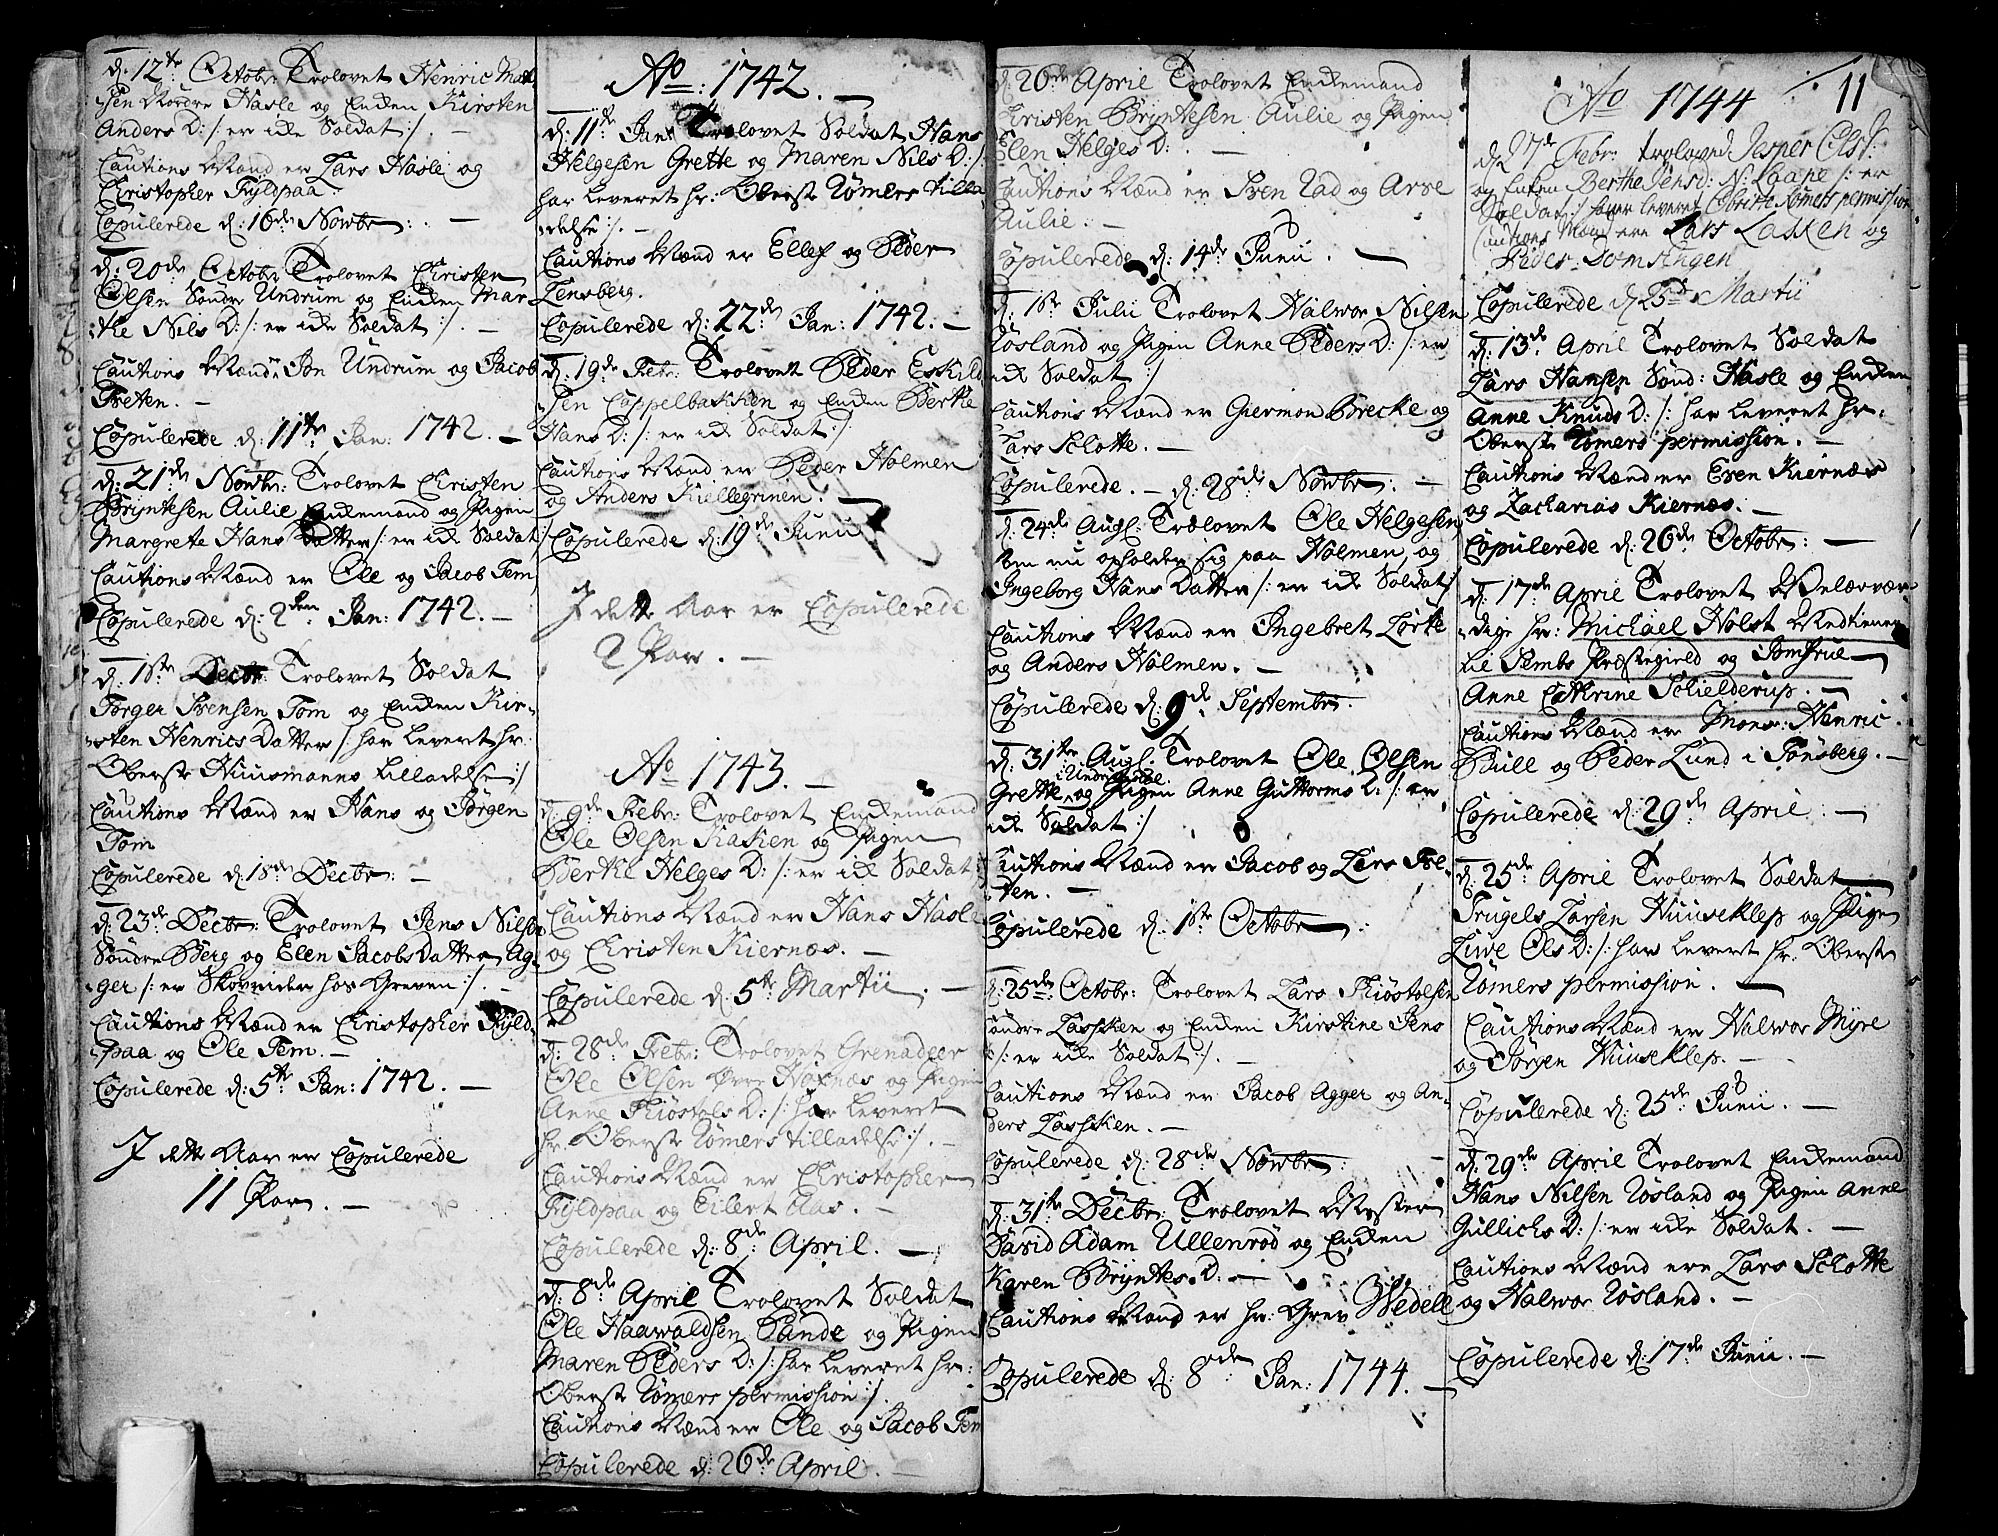 d: 12te October Trolovet Henric Mat-
sen Nordre Hasle og Enken Kirsten
Anders D: /: er icke Soldat :/. —
Cautions Mænd er Lars Hasle og
Christopher Fyldpaa.
Copulerede d: 16de Novbr: —
d: 20de Octobr Trolovet Christen
Olsen Søndre Undrum og Enken Mar-
the Nils D: /: er icke Soldat :/. —
Cautions Mænd: Jon Undrum og Jacob
Treten. —
Copulerede d: 11te Jan: 1742. —
d: 21de Novbr: Trolovet Christen
Bryntesen Aulie Enckemand og Pigen
Margrete Hans Datter /: er icke Soldat :/
Cautions Mænd er Ole og Jacob Tem
Copulerede d: 2den Jan: 1742. —
d: 1ste Decbr: Trolovet Soldat
Torger Svensen Tom og Enken Kir-
sten Henrics Datter /: har leveret hr:
Oberste Huusmanns tilladelse :/
Cautions Mænd er Hans og Jørgen
Tom
Copulerede d: 18de Decbr: —
d: 23de Decbr: Trolovet Jens Nilsen
Søndre Berg og Elen Jacobs Datter Ag-
ger /: er Skovrider hos Greven :/. —
Cautions Mænd er Christopher Fyld-
paa og Ole Tem. —
Copulerede d: 5te Jan: 1742. —
I dette Aar er Copulerede
11 Par. —
Ao: 1742. —
d: 11te Jan: Trolovet Soldat Hans
Helgesen Grette og Maren Nils D: /:
har leveret hr: Oberste Rømers tilla-
delse :/. —
Cautions Mænd er Ellef og Peder
Lensberg.
Copulerede d: 22de Jan: 1742. —
d: 19de Febr: Trolovet Peder Eskild-
sen Coppelbakken og Enken Berthe
Hans D: /: er icke Soldat :/
Cautions Mænd er Peder Holmen
og Anders Kiellegrinen. —
Copulerede d: 19de Junii
I dette Aar er Copulerede
2 Par. —
Ao 1743. —
d: 9de Febr: Trolovet Enckemand
Ole Olsen Kaken og Pigen
Berthe Helges D: /: er icke Soldat :/
Cautions Mænd er Hans Hasle
og Christen Kiernæs. —
Copulerede d: 5te Martii. —
d: 28de Febr: Trolovet Grenadeer
Ole Olsen Øvre Hoxnæs og Pigen
Anne Thiostels D: /: har leveret
hr: Oberste Rømers tilladelse :/. —
Cautions Mænd er Christopher
Fyldpaa og Eilert Aas. —
Copulerede d: 8de April. —
d: 8de April Trolovet Soldat
Ole Haawaldsen Sande og Pigen
Maren Peders D: /: har leveret hr:
Oberst Rømers permission :/.
Cautions Mænd er Ole og Jacob Tem
Copulerede d: 26de April. —
d: 26de April Trolovet Enckemand
Christen Bryntesen Aulie og Pigen
Elen Helges D: —
Cautions Mænd er Sven Rad og Arve
Aulie. —
Copulerede d: 14de Junii. —
d: 1ste Julii Trolovet Halwor Nilsen
Røsland og Pigen Anne Peders D: /: er
icke Soldat :/
Cautions Mænd er Giermon Brecke og
Lars Slotte. —
Copulerede. — d: 28de Novbr: —
d: 24de Augl: Trolovet Ole Helgesen
som nu opholder sig paa Holmen, og
Ingeborg Hans Datter /: er icke Soldat :/
Cautions Mænd er Ingebret Lørke
og Anders Holmen. —
Copulerede d: 9de Septembr.
d: 31te Augl. Trolovet Ole Olsen
Grette og Pigen Anne Guttorms D: /: er
icke Soldat :/
Cautions Mænd er Jacob og Lars Tre-
ten. —
Copulerede d: 1ste Octobr:
d: 25de Octobr: Trolovet Lars Thiostelsen
Søndre Lassken og Enken Kirstine Jens
D /: er icke Soldat :/. —
Cautions Mænd er Jacob Agger og An-
ders Lassken. —
Copulerede d: 28de Novbr:
d: 31te Decbr: Trolovet Mester
David Adam Ullenrød og Enken
Karen Bryntes D. —
Cautions Mand er hr: Grev Wedell
Copulerede d: 8de Jan: 1744. —
11
Ao 1744
d 27de Febr: troloved Jesper Ols:
og Enken Berthe Jensd: N: Raane /: er
Soldat :/ haver leveret Obriste Rømers permission
Cautions Mænd ere Lars Lasken og
Peder Somstngen
Copulerede d 25de Martii
d: 13de April Trolovet Soldat
Lars Hansen Sønd: Hasle og Enken
Anne Knuds D: /: har leveret hr:
Oberste Rømers permission. —
Cautions Mænd er Even Kiernæs
og Zacharias Kiernæs. —
Copulerede d: 26de Octobr: —
d: 17de April Trolovet Velærvær-
dige hr: Michael Holst Medtiener
til Sembs Præstegield og Jomfrue
Anne Cathrine Schielderup. —
Cautions Mænd er Mons: Henric
Bull og Peder Lund i Tønsberg. —
Copulerede d: 29de April. —
d: 25de April Trolovet Soldat
Trugels Larsen Huuseklep og Pigen
Live Ols D: /: har leveret hr: Oberste
Rømers permission. —
Cautions Mænd er Halwor Myre
og Jørgen Huuseklep. —
Copulerede d: 25de Junii. —
d: 29de April Trolovet Enckemand
Hans Nilsen Røsland og Pigen Anne
Gullichs D: /: er icke Soldat. —
Cautions Mænd ere Lars Slotte
og Halwor Røsland. —
Copulerede d: 17de Junii. —